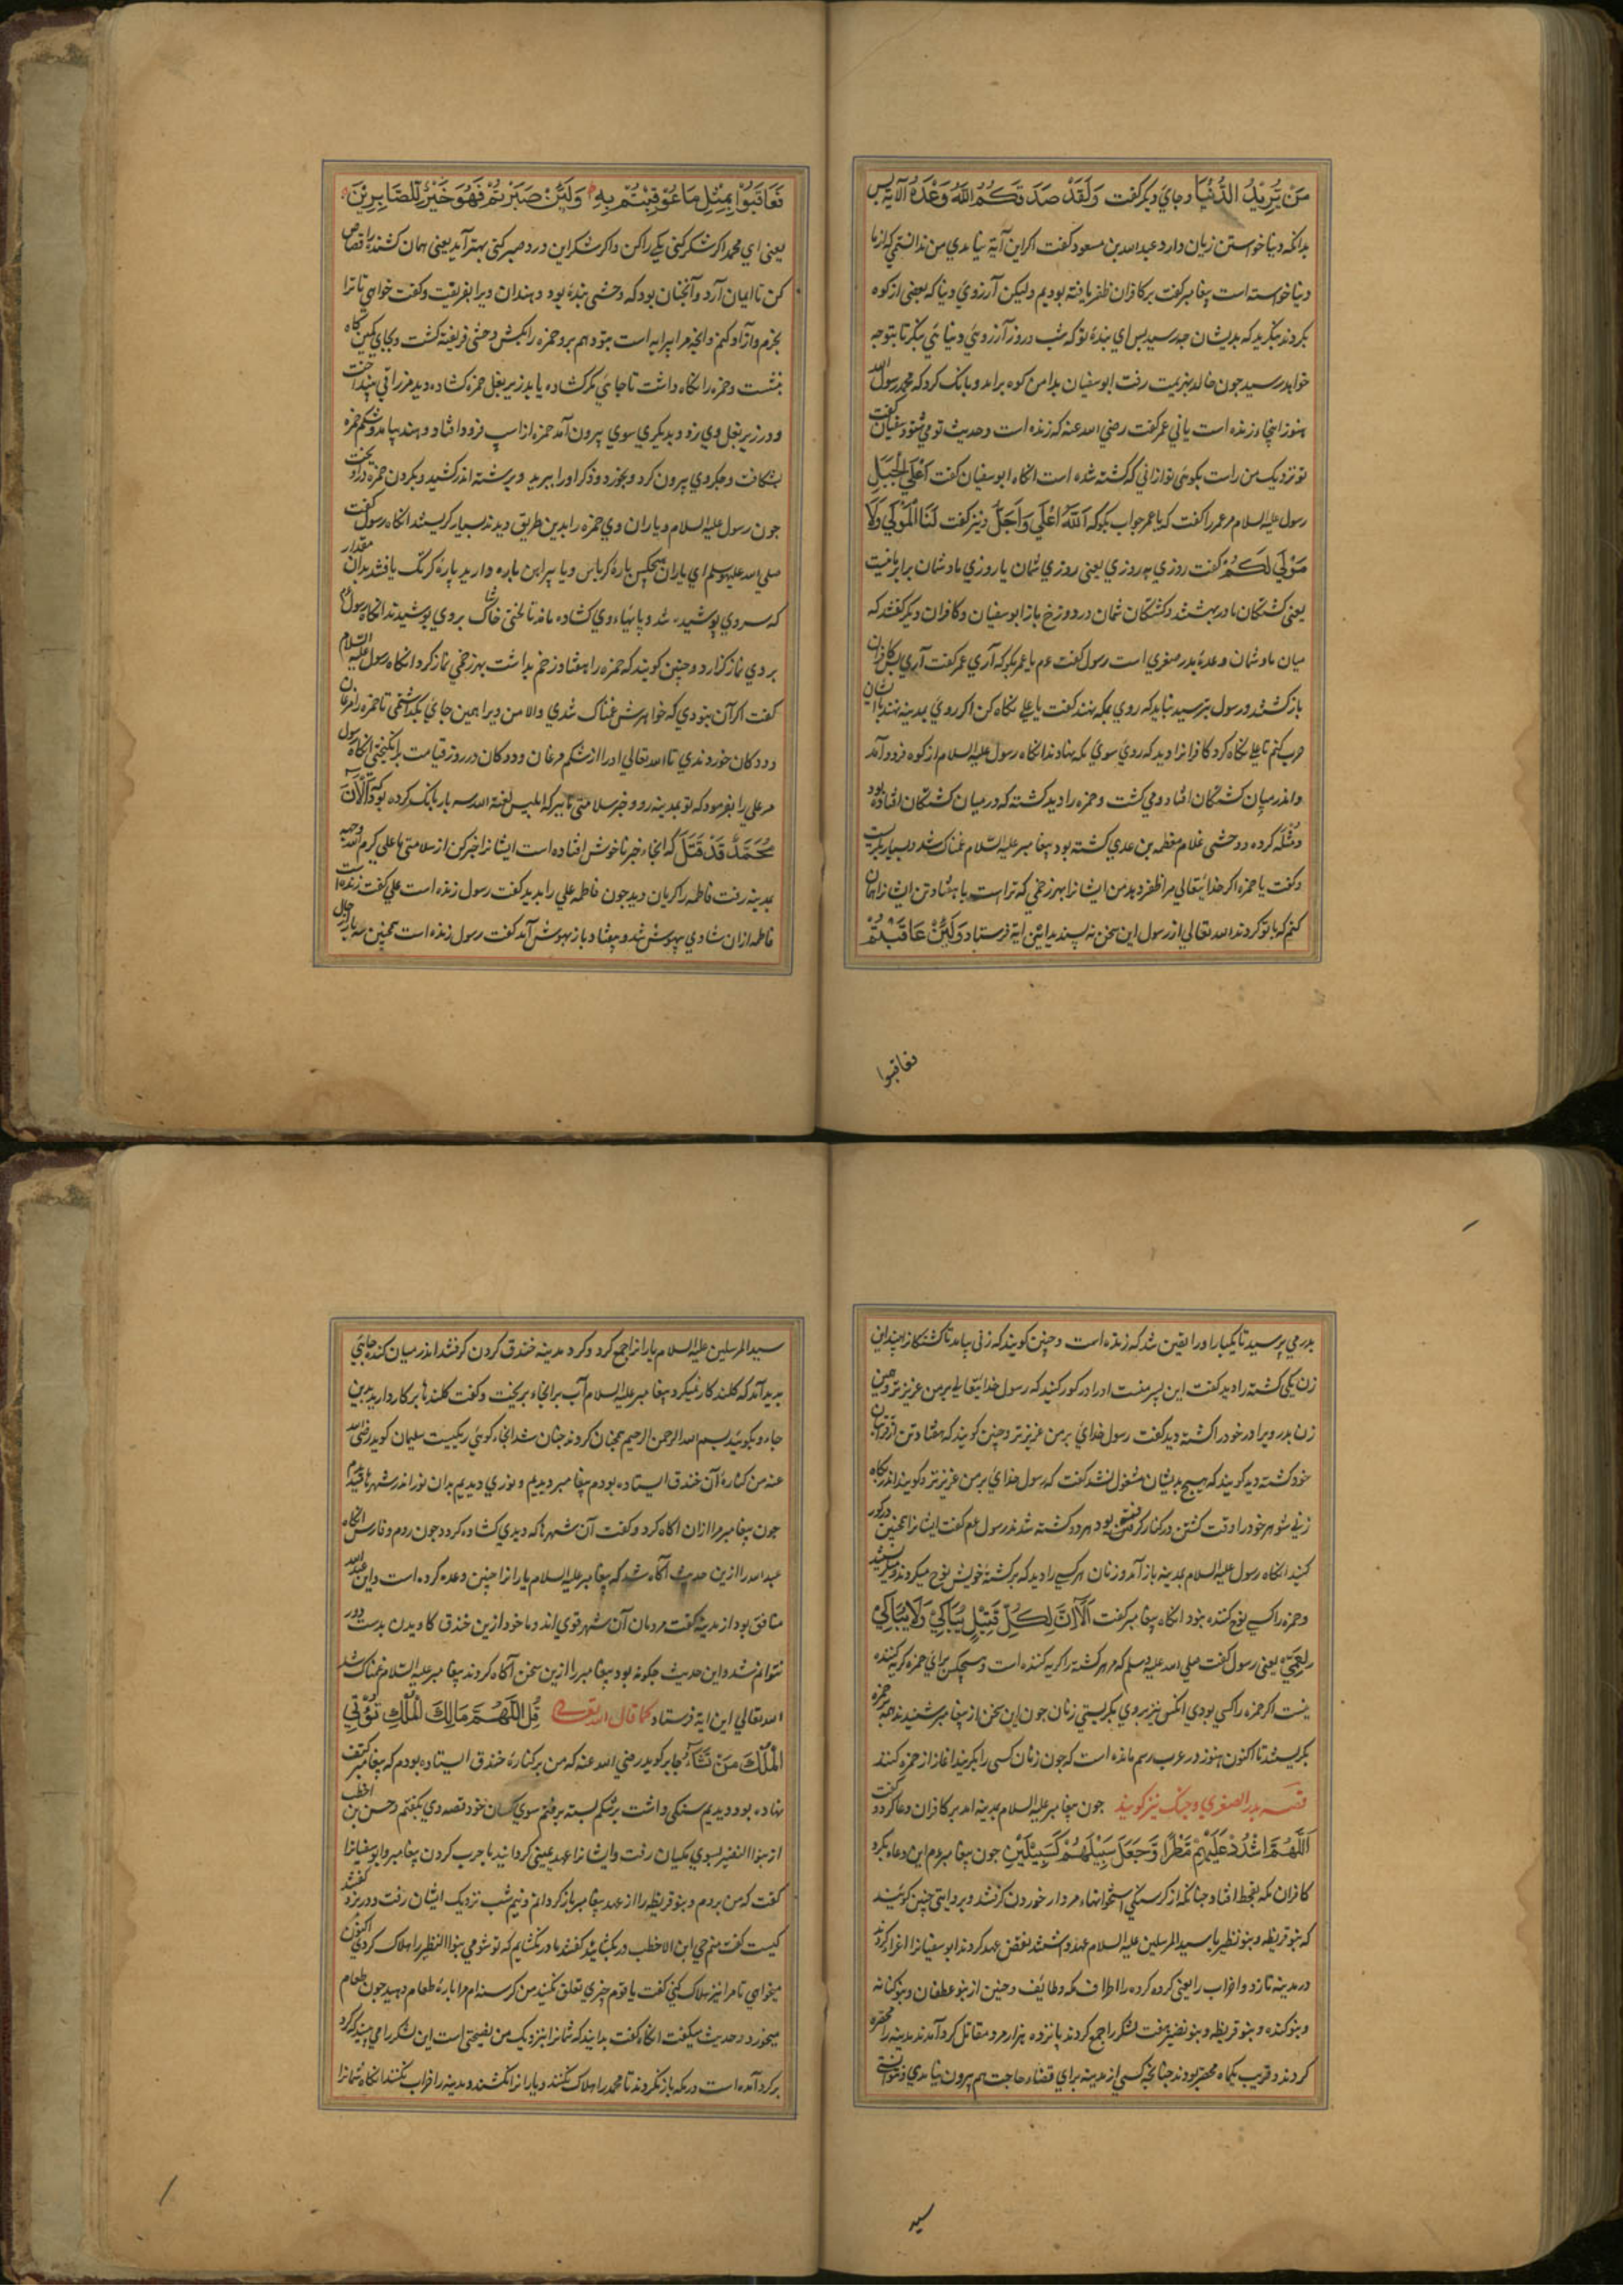 مَنْ يُرِيْدُ الدُّنْيَا وجاي ديكر كفت وَلَقَدْ صَدَقَكُمُ اللّٰهُ وَعْدَهُ الآية پس
بدانكه دنيا خواستن زيان دارد عبدالله بن مسعود كفت اكر اين آية نيامدي من ندانستمي كه از ما
دنيا خواسته است پيغامبر كفت بر كافران ظفر يافته بوديم وليكن آرزوي دنيا كه بعضي از كوه
بكردند بنكريد كه بديشان چه رسيد پس اي بنده تو كه شب و روز آرزوئي دنيائي بنكر تا بتو چه
خواهد رسيد چون خالد بهزيمت رفت ابو سفيان بدامن كوه برآمد و بانك كرد كه محمد رسول الله
هنوز اينجا و زنده است ياني عمر كفت رضي الله عنه كه زنده است وحديث تو مي شنود سفيان كفت
تو نزديك من راست بكوئي تو از اني كه كشته شده است انكاه ابو سفيان كفت اَعْلَي الْجَبَلِ
رسول عليه السلام مر عمر را كفت كه يا عمر جواب بكو كه اَللّٰهُ اَعْلَي وَاَجَلُّ ونيز كفت لَنَا الْمَوْلَي وَلَا
مَوْلَي لَكُمْ كفت روزي به روزي يعني روزي شمان يا روزي ما و شمان برابر نيست
يعني كشتكان ما در بهشتند و كشتكان شمان در دوزخ باز ابو سفيان و كافران ديكر كفتند كه
ميان ما و شمان وعده بدر صغري است رسول كفت عم يا عمر بكو كه آري عمر كفت آري پس كافران
باز كشتند و رسول بترسيد نبايد كه روي بمكه نهند كفت يا علي نكاه كن اكر روي بمدينه نهند با ايشان
حرب كنم تا علي نكاه كرد كافرانرا ديد كه روي سوي مكه نهادند انكاه رسول عليه السلام از كوه فرود آمد
واندر ميان كشتكان افتاد و مي كشت و حمزه را ديد كشته كه در ميان كشتكان افتاده بود
و مُثله كرده و وحشي غلام مطعم بن عدي كشته بود پيغامبر عليه السلام غمناك شد و بسيار بكريست
وكفت يا حمزه اكر خدايتعالي مرا ظفر دهد من ايشانرا بهر زخمي كه تراست يا هفتاد تن ايشانرا همان
كنم كه با تو كردند الله تعالي از رسول اين سخن نه پسنديد اين اية فرستاد وَلَئِنْ عَاقَبْتُمْ
فعاقبوا
فَعَاقِبُوْا بِمِثْلِ مَا عُوْقِبْتُمْ بِهِ وَلَئِنْ صَبَرْتُمْ فَهُوَ خَيْرٌ لِلصَّابِرِيْنَ
يعني اي محمد اكر شكر كني يكي را كن و اكر شكر اين درد صبر كني بهتر آيد يعني همان كشنده را قصاص
كن تا ايمان آرد و آنچنان بود كه وحشي بنده بود و هند ان ويرا بفريفت وكفت خواهي تا ترا
بخرم و آزاد كنم و انچه مرا پيرايه است بتو دهم برو حمزه را بكش وحشي فريفته كشت و بجاي كمين كاه
بنشست و حمزه را نكاه داشت تا جائي مكر كشاده يابد زير بغل حمزه كشاده ديد مزراقي بينداخت
و در زير بغل وي زد و بديكري سوي بيرون آمد حمزه از اسپ فرود افتاد و هند بيامد و شكم حمزه
بشكافت و جكر وي بيرون كرد و بخورد و ذكر او را ببريد و برشته اندر كشيد و بكردن حمزه در آويخت
چون رسول عليه السلام و ياران وي حمزه را بدين طريق ديدند بسيار كريستند انكاه رسول كفت
صلي الله عليه وسلم اي ياران هيچكس پاره كرباس و يا پيراهن پاره داريد پاره كرتك يافتند بدان مقدار
كه سر وي پوشيده شد و پايهاء وي كشاده ماند تا لختي خاشاك بر وي پوشيدند انكاه رسول
بر وي نماز كزارد و چنين كويند كه حمزه را هفتاد زخم بداشت بهر زخمي نماز كرد انكاه رسول عليه السلام
كفت اكر آن نبودي كه خواهرش غمناك شدي والا من ويرا همين جاي بكذاشتمي تا حمزه را مرغان
و ددكان خوردندي تا الله تعالي او را از شكم مرغان و ددكان در روز قيامت برانكيختي انكاه رسول
مر علي را بفرمود كه تو بمدينه رو و خبر سلامتي ما ببر كه ابليس لعنة الله سه بار بانك كرده بود كه اَلَا اِنَّ
مُحَمَّدً قَدْ قَتَلَ كه انجاء خبر ناخوش افتاده است ايشانرا خبر كن از سلامتي ما علي كرم الله وجهه
بمدينه رفت فاطمه را كريان ديد چون فاطمه علي را بديد كفت رسول زنده است علي كفت زنده است
فاطمه از ان شادي بيهوش شد و بيفتاد باز بهوش آمد كفت رسول زنده است همچنين سه بار از حال
پدر مي پرسيد تا يكبار او را يقين شد كه زنده است و چنين كويند كه زني بيامد تا كشتكانرا بيند اين
زن يكي كشته را ديد كفت اين پسر منست او را در كور كنيد كه رسول خدايتعالي بر من عزيزتر و همين
زن پدر و برادر خود را كشته ديد كفت رسول خداي بر من عزيزتر و چنين كويند كه هفتاد تن از قرابتان
خود كشته ديد كويند كه هيچ بديشان مشغول نشد كفت كه رسول خداي بر من عزيزتر و كويند اندر نكاه
زني شوهر خود را وقت كشتن در كنار كرفته بود هر دو كشته شدند رسول عم كفت ايشانرا همچنين در كور
كنيد انكاه رسول عليه السلام بمدينه باز آمد و زنان هر كسي را ديد كه بر كشته خويش نوح ميكردند و ميكريستند
و حمزه را كسي نوح كننده نبود انكاه پيغامبر كفت اَلَا اِنَّ لِكُلِّ قَتِيْلٍ يُبَاكِيْ وَلَا يُبَاكِيْ
لِعَمِّيْ يعني رسول كفت صلي الله عليه وسلم كه مر هر كشته را كريه كننده است و هيچكس براي حمزه كريه كننده
نيست اكر حمزه را كسي بودي انكس نيز بر وي بكريستي زنان چون اين سخن از پيغامبر شنيدند همه بر حمزه
بكريستند تا اكنون هنوز در عرب رسم مانده است كه چون زنان كسي را بكريند اغاز از حمزه كنند
قصه بدر الصغري و جنك نيز كويند چون پيغامبر عليه السلام بمدينه امد بر كافران دعا كرد و كفت
اَللّٰهُمَّ اشْدُدْ عَلَيْهِمْ مَطَرًا وَجَعَلَ سَبِيْلَهُمْ كَسَبِيْلَيْنِ چون پيغامبر عم اين دعاء بكرد
كافران مكه بقحط افتاد چنانكه از كرسنكي استخوانهاء مردار خوردن كرفتند و بروايتي چنين كوئيند
كه بنو قريظه و بنو نظير با سيد المرسلين عليه السلام عهد داشتند نقض عهد كردند ابو سفيانرا اغراء كردند
در مدينه تازد و احزاب را يعني كرده كرده را اطراف مكه و طائف و حنين از بنو عطفان و بنو كنانه
و بنو كنده و بنو قريظه و بنو نضير هفت لشكر را جمع كردند پانزده هزار مرد مقاتل كرد آمدند مدينه را محصره
كردند و قريب يكماه محصر بودند چنانچه كسي از مدينه براي قضاء حاجت هم بيرون نيامدي و نتوانستي
سيد
سيد المرسلين عليه السلام يارانرا جمع كرد و كرد مدينه خندق كردن كرفتند اندر ميان كنده جايي
پديد آمد كه كلند كار نميكرد پيغامبر عليه السلام آب بر انجاء بريخت وكفت كلندها بر كار داريد بدين
جاء و بكوئيد بسم الله الرحمن الرحيم همچنان كردند چنان شد انجاء كوئي ريكيست سليمان كويد رضي الله
عنه من كناره آن خندق ايستاده بودم پيغامبر ديديم و نوري ديديم بدان نور اندر شهرها ديدم
چون پيغامبر مرا ازان اكاه كرد و كفت آن شهرها كه ديدي كشاده كردد چون روم و فارس انكاه
عبد الله را ازين حديث آكاه شد كه پيغامبر عليه السلام يارانرا چنين وعده كرده است و اين عبد الله
منافق بود از مدينه كفت مردمان آن شهر قوي اند و ما خود ازين خندق كاويدن بدست دور
نتوانم شد و اين حديث چكونه بود پيغامبر را ازين سخن آكاه كردند پيغامبر عليه السلام غمناك شد
الله تعالي اين اية فرستاد كما قال الله تعالي قُلِ اللّٰهُمَّ مَالِكَ الْمُلْكِ تُؤْتِي
الْمُلْكَ مَنْ تَشَاءُ جابر كويد رضي الله عنه كه من بر كناره خندق ايستاده بودم كه پيغامبر كتف
نهاده بود و ديديم سنكي داشت بر شكم بسته برفتم سوي كسان خود قصه وي بكفتم و حسن بن اخطب
از بنو النضير بسوي مكيان رفت و ايشانرا عهد بميني كردانيد با حرب كردن پيغامبر و ابو سفيانرا
كفت كه من بروم و بنو قريظه را از عهد پيغامبر باز كردانم و نيم شب نزديك ايشان رفت و در بزد كفتند
كيست كفت منم حي ابن الاخطب در بكشائيد كفتند ما در نكشايم كه تو شومي بنو النظير را هلاك كردي اكنون
ميخواهي تا مرا نيز هلاك كني كفت يا قوم چيزي تعلق نكنيد من كرسنه ام مرا پاره طعام دهيد چون طعام
ميخورد و حديث ميكفت انكاه كفت بدانيد كه شمانرا نزديك من نصيحتي است اين لشكر را مي بينيد كه كرد
بر كرد آمده است در مكه باز نكردند تا محمد را هلاك نكنند و يارانرا نكشند و مدينه را خراب نكنند انكاه شمانرا